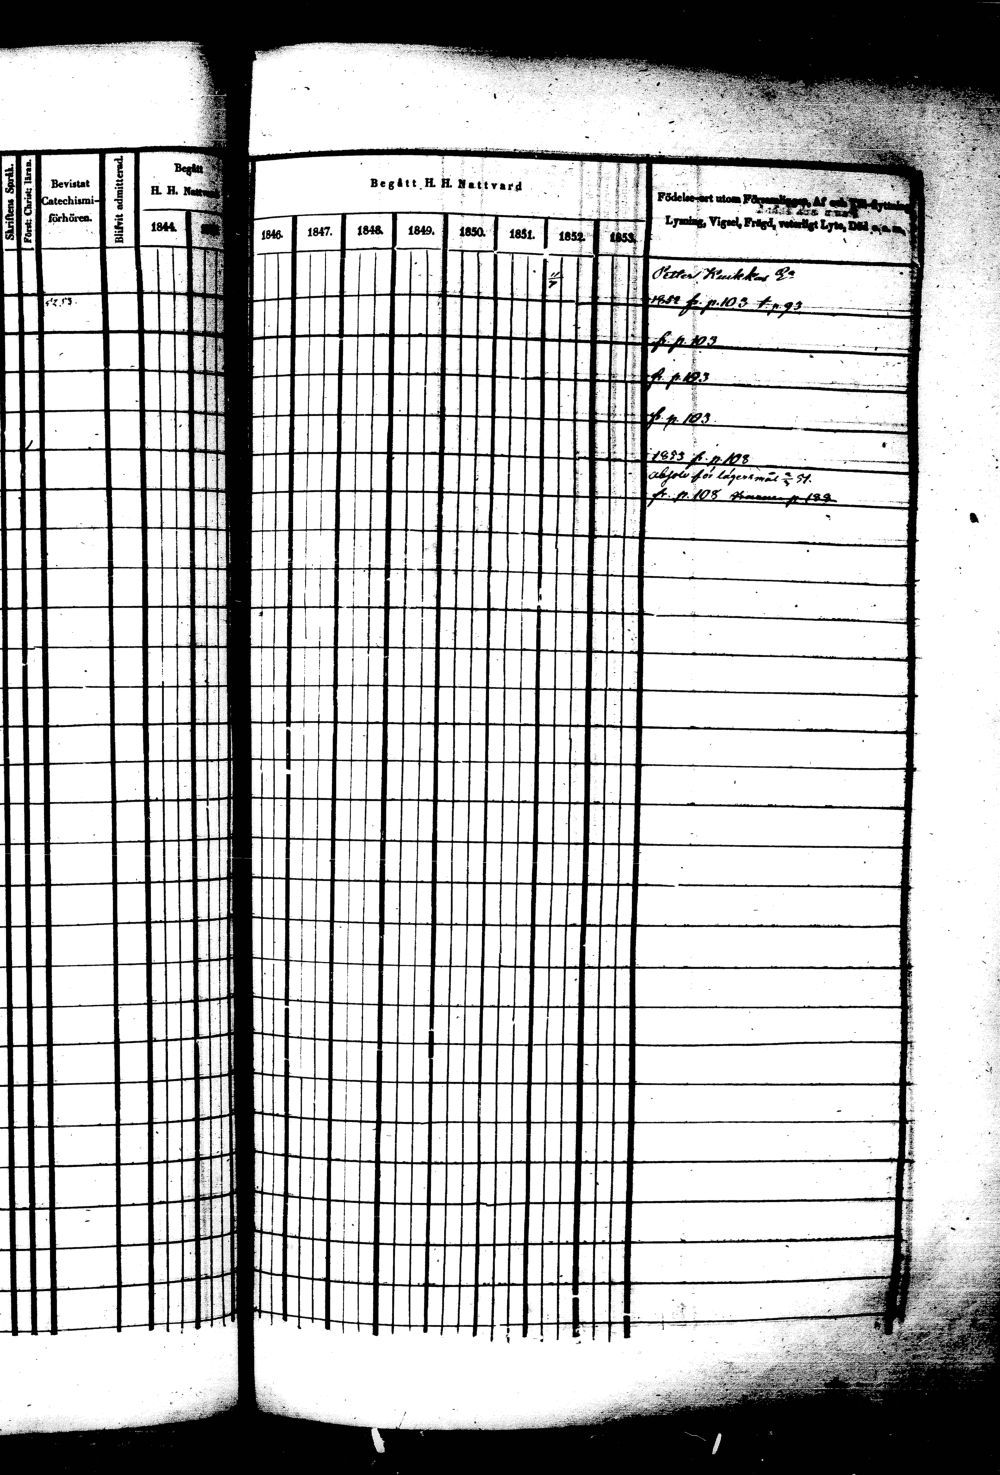 Skriftens Språk.
Först: Christ: lären.
Bevistat
Catechismi-
förhören.
Blifvit admitterad.
Begått
H. H. Nattvard
1844.
52.53.
Begått H. H. Nattvard
1846. 1847. 1848. 1849. 1850. 1851. 1852. 1853.
Födelse-ort utom Församlingen, Af och Till-flyttning
Lysning, Vigsel, Frägd, vaterligt Lyte, Död o. s. m.
Petter Kukkos
1852 fr. p. 103 t. p. 93
fr. p. 103
fr. p. 103
fr. p. 103.
1853 fr. p. 103
absolv för lägersmål 51.
fr. p. 103